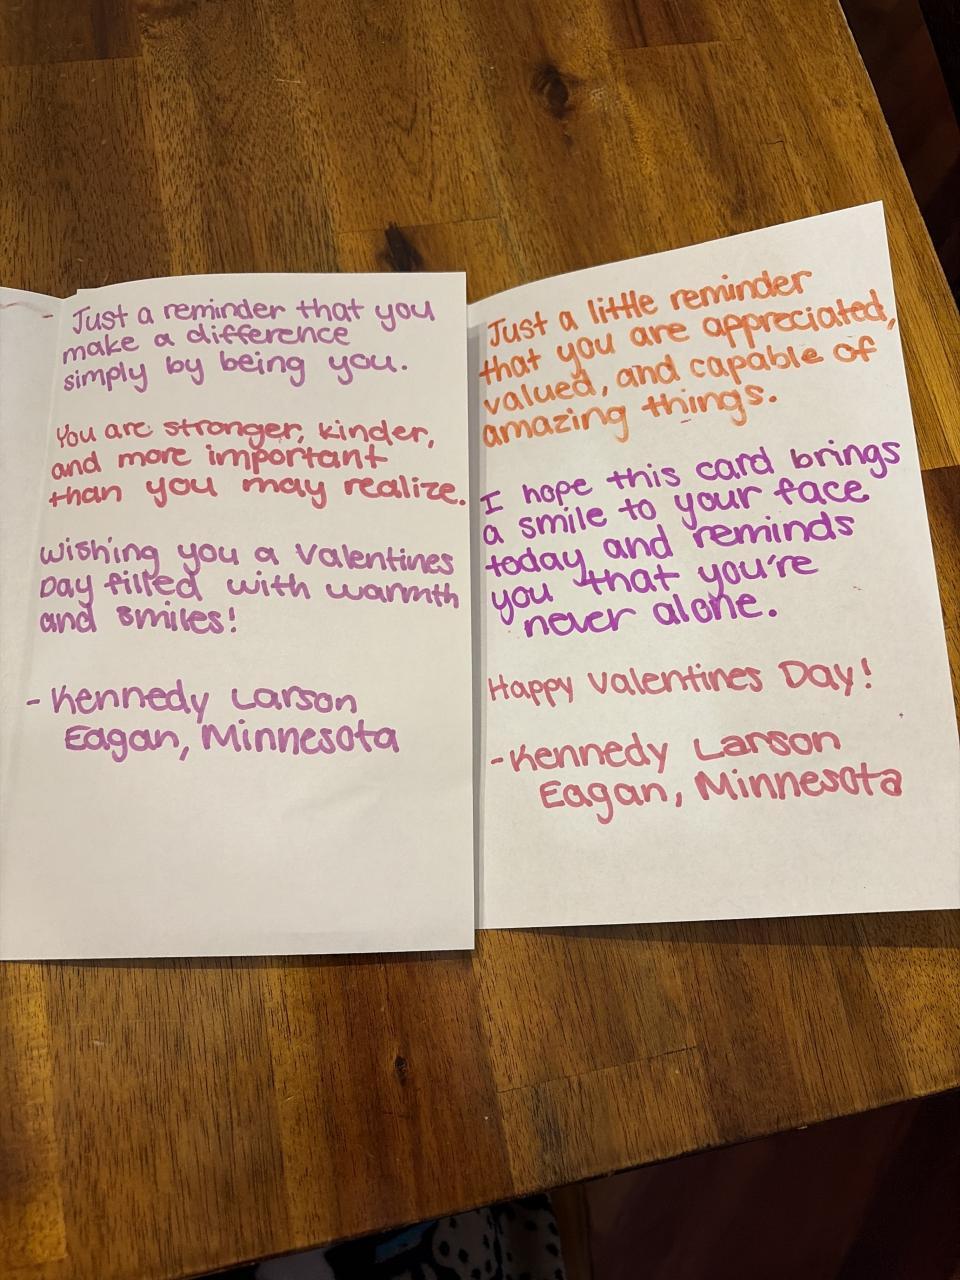 Just a reminder that you
make a difference
simply by being you.
You are stronger, kinder,
and more important
than you may realize.
Wishing you a Valentines
Day filled with warmth
and smiles!
- Kennedy Larson
Eagan, Minnesota
Just a little reminder
that you are appreciated,
valued, and capable of
amazing things.
I hope this card brings
a smile to your face
today and reminds
you that you're
never alone.
Happy Valentines Day!
- Kennedy Larson
Eagan, Minnesota